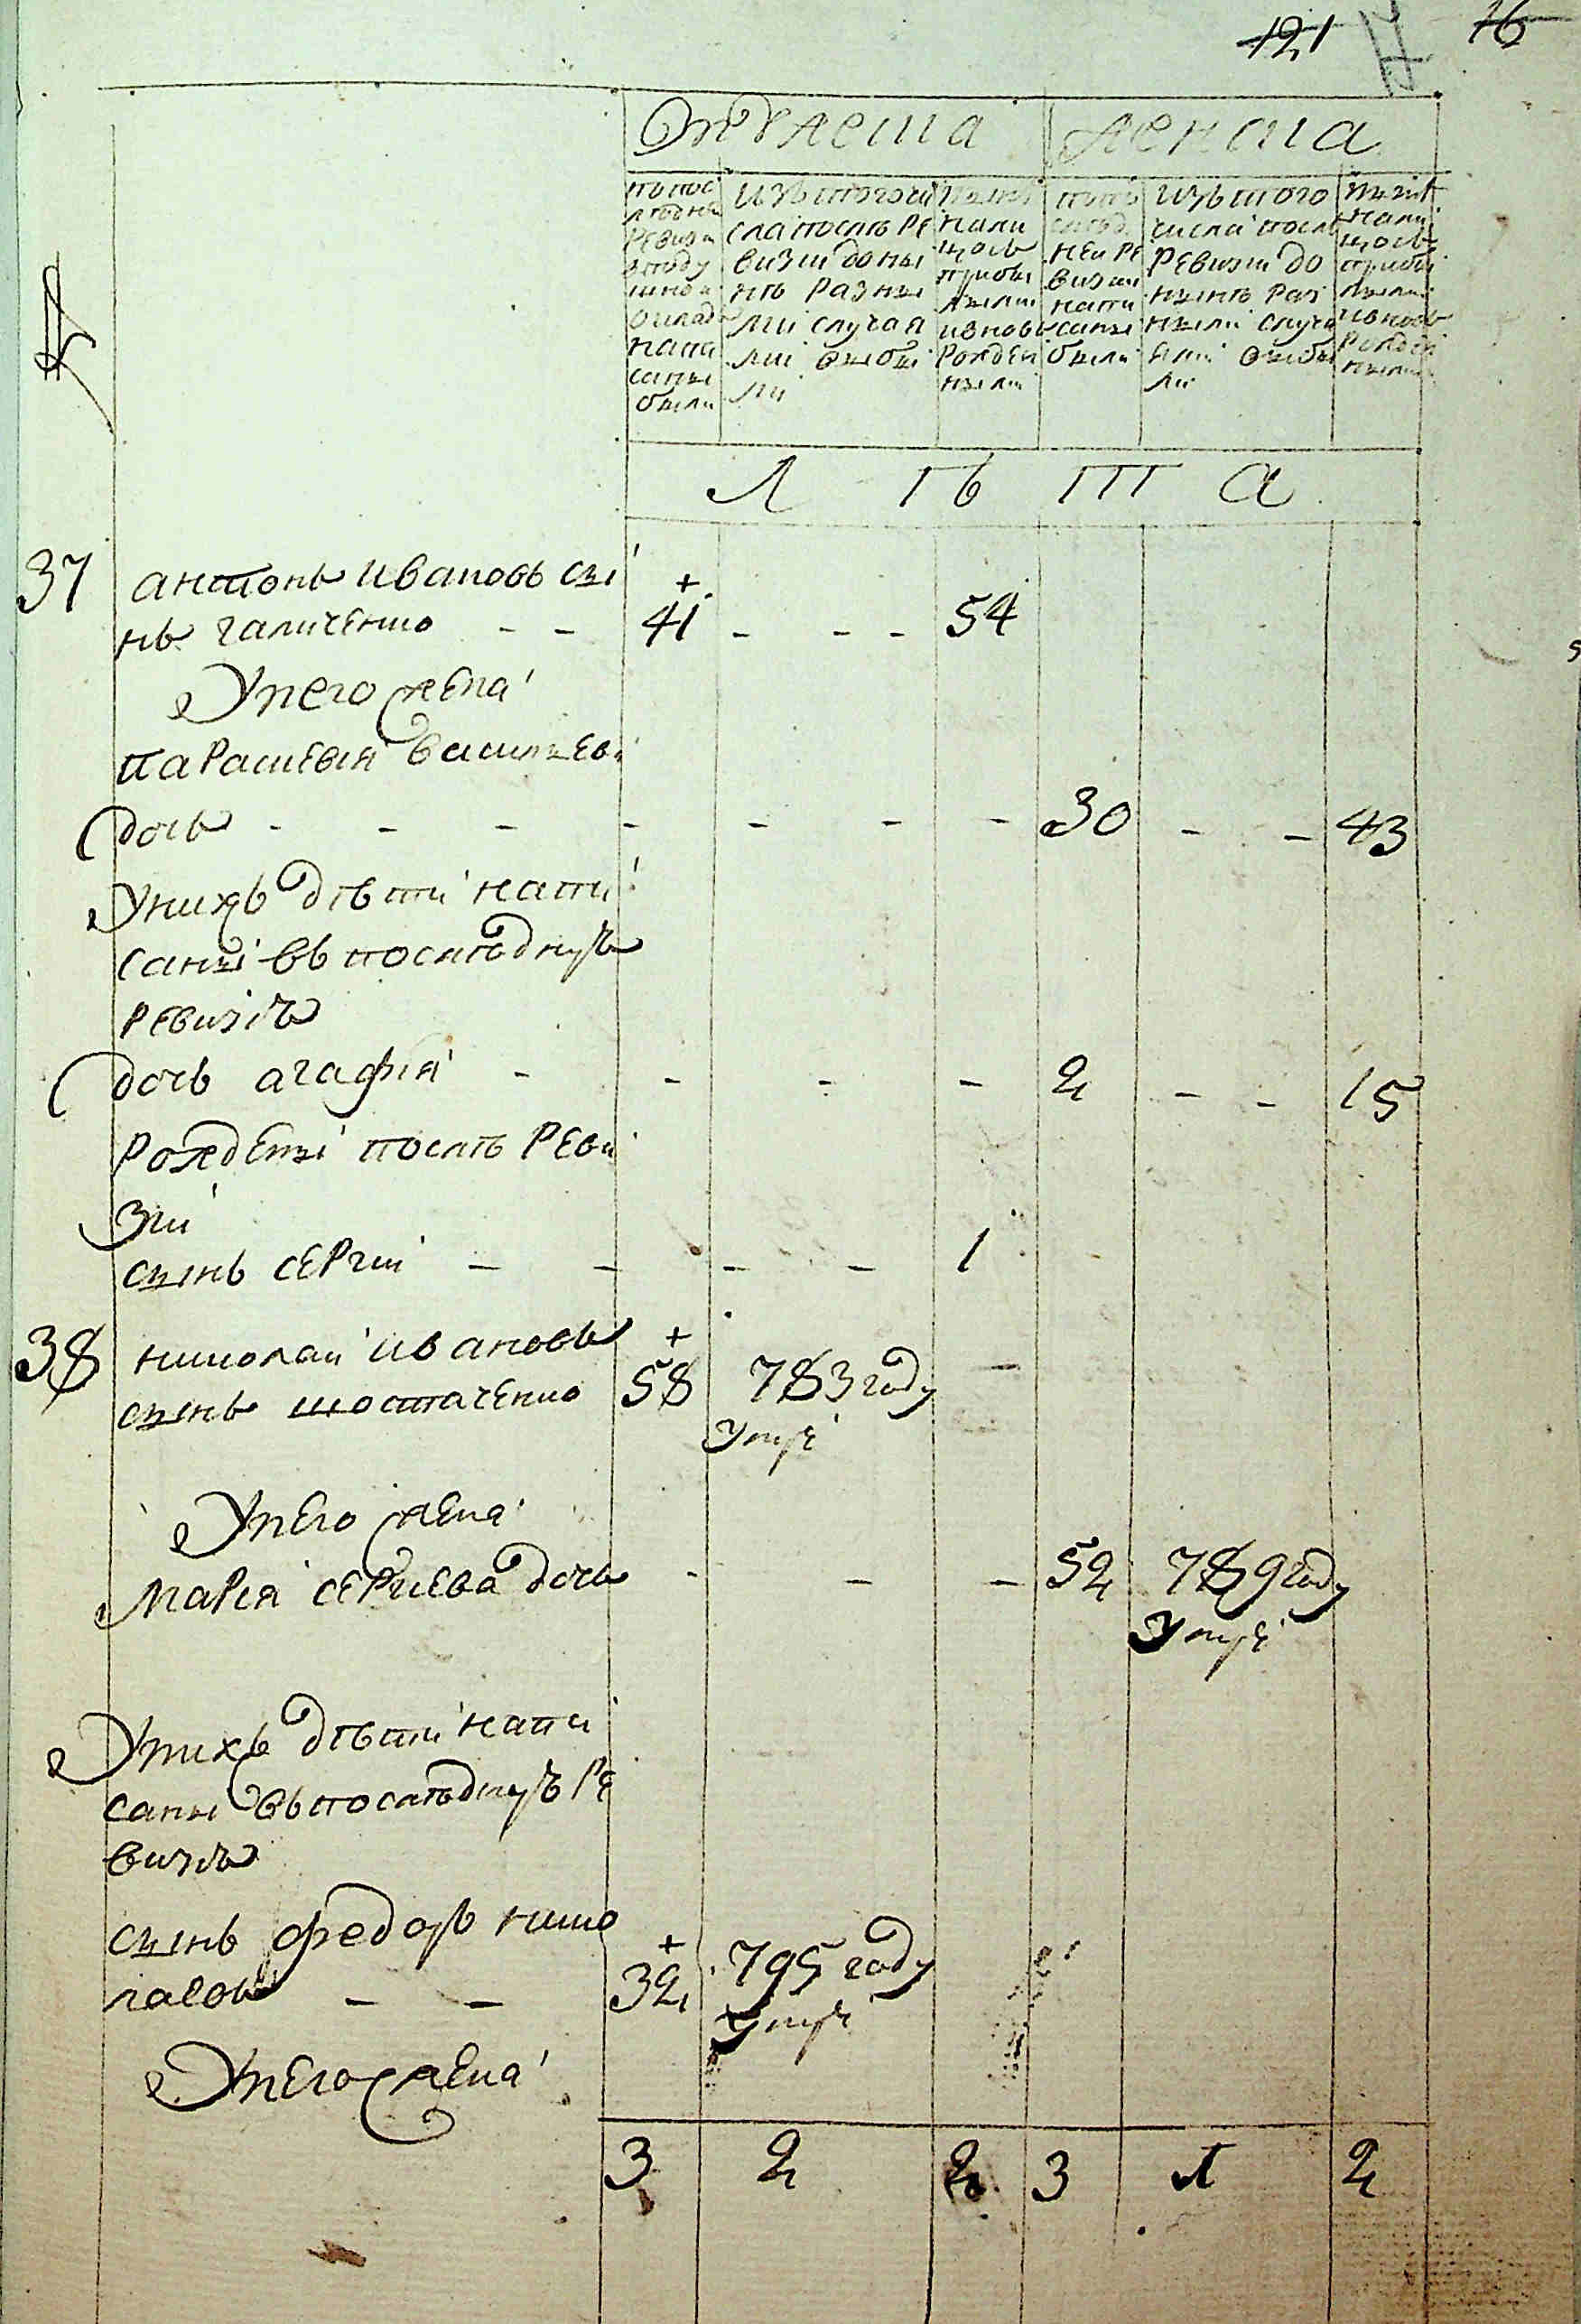 121 76
Мужеска женска
по пос
ледней
ревизи
в поду
шно
оклад
напи
саны
были
изъ того чи
сла после ре
визии до ны
нѣ разны
ми случая
ми выбы
ли
нынѣ
нали
цось
прибы
лыми
и вновь
рожден
ными
по по
след
ней ре
визии
напи
саны
были
изъ того
числа посл
ревизии до
нынѣ раз
ными случа
ями выбы
ли
нынѣ
нали
цось
прибы
лыми
и вновь
рожден
ными
Л ѣ т а
37 антонъ ивановъ сы
нъ галиченко - - 41 - - - 54
У него жена
параскевия василиева
дочь - - - - - - - 30 - - 43
У нихъ дѣти напи
саны въ последную
ревизию
дочь агафия - - - - 2 - - 15
рождены после реви
зии
сынъ сергии - - - - 1
38 николаи ивановъ
сынъ шостаченко 58 783 году -
умре
У него жена
мария сергиева дочь - - - 52 789 году
умре
У нихъ дѣти напи
саны въ последную ре
визию
сынъ федоръ нико
лаевъ - - 32 795 году
умре
У него жена
3 2 2 3 1 2